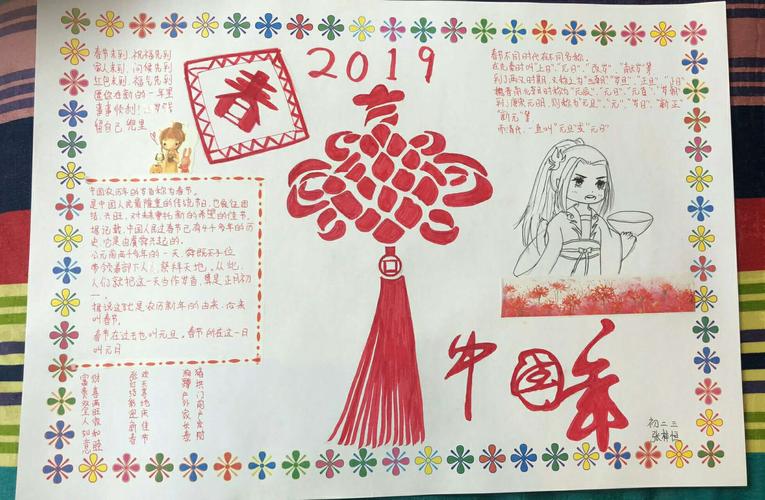 2019
春节来到，祝福先到
家人来到，问候先到
红包来到，福气先到
愿你在新的一年里
事事顺利！
留自己兜里
春
春节不同时代有不同名称。
在先秦时叫"上日"、"元日"、"改岁"、"献岁"等
到了两汉时期，又称之为"三朝"、"岁旦"、"正旦"、"正日"
魏晋南北朝时称为"元辰"、"元日"、"元首"、"岁朝"
到了唐宋元明，则称为"元旦"、"元"、"岁日"、"新正"
"新元"等
而清代，一直叫"元旦"或"元日"
中国农历年的岁首称为春节。
是中国人民最隆重的传统节日，也象征团
结、兴旺，对未来寄托新的希望的佳节。
据记载，中国人民过春节已有4千多年的历
史，它是由虞舜兴起的。
公元前两千多年的一天，舜即天子位
带领着部下人，祭拜天地。从此，
人们就把这一天当作岁首，算是正月初
一。
据说这就是农历新年的由来，后来
叫春节。
春节在过去也叫元旦。春节所在这一日
叫元日
财喜两旺
富贵登人如意
张灯结彩迎新春
户户
家
中国年
初二三